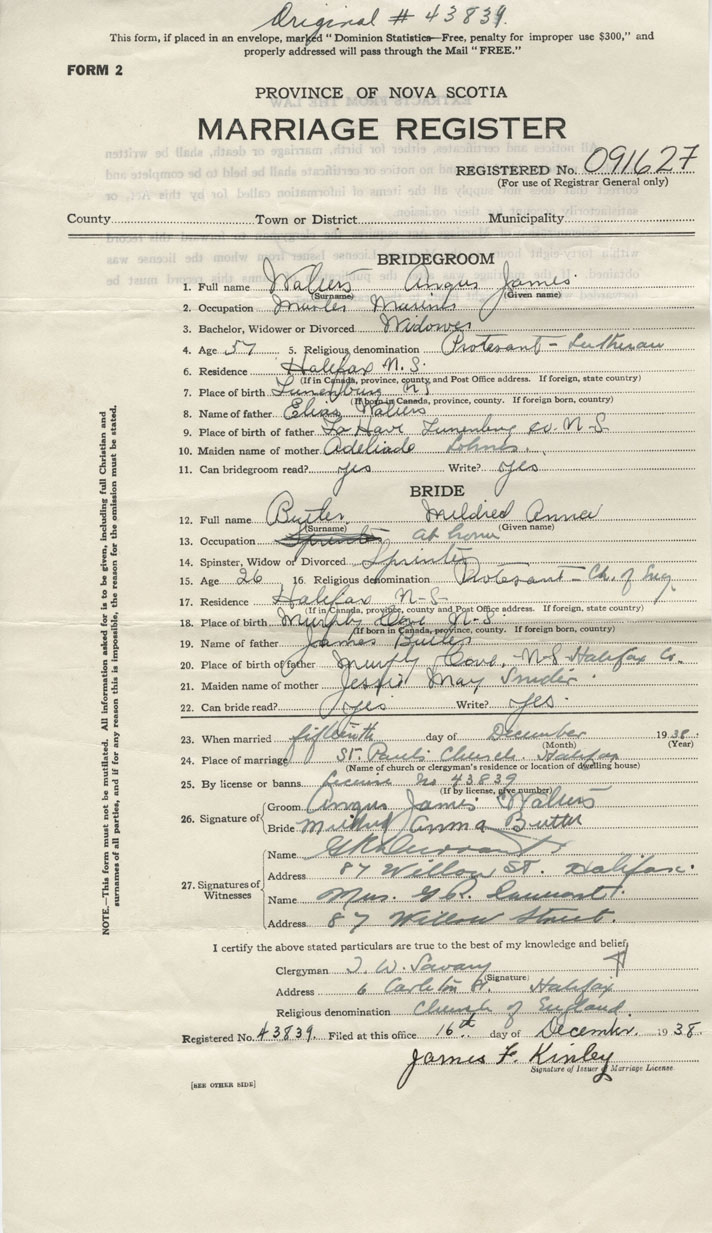 Original # 43839.
This form, if placed in an envelope, marked "Dominion Statistics—Free, penalty for improper use $300," and
properly addressed will pass through the Mail "FREE."
FORM 2
PROVINCE OF NOVA SCOTIA
MARRIAGE REGISTER
REGISTERED No. 091627
(For use of Registrar General only)
County Town or District Municipality
BRIDEGROOM
1. Full name Walters Angus James
(Surname) (Given name)
2. Occupation Master Mariner
3. Bachelor, Widower or Divorced Widower
4. Age 57 5. Religious denomination Protesant - Lutheran
6. Residence Halifax N.S.
(If in Canada, province, county, and Post Office address. If foreign, state country)
7. Place of birth Lunenburg N S
(If born in Canada, province, county. If foreign born, country)
8. Name of father Elias Walters
9. Place of birth of father La Have Lunenburg co. N-S
10. Maiden name of mother Adeliade Lohnes
11. Can bridegroom read? yes Write? yes
BRIDE
12. Full name Butler Mildred Anna
(Surname) (Given name)
13. Occupation at home
14. Spinster, Widow or Divorced Spinster
15. Age 26 16. Religious denomination Protesant - Ch. of Eng.
17. Residence Halifax N-S
(If in Canada, province, county and Post Office address. If foreign, state country)
18. Place of birth Murphy Cove N-S
(If born in Canada, province, county. If foreign born, country)
19. Name of father James Butler
20. Place of birth of father Murphy Cove, N-S Halifax Co.
21. Maiden name of mother Jessie May Snider
22. Can bride read? yes Write? yes.
23. When married fifteenth day of December 1938
(Month) (Year)
24. Place of marriage St. Paul's Church. Halifax
(Name of church or clergyman's residence or location of dwelling house)
25. By license or banns License No 43839
(If by license, give number)
26. Signature of Groom Angus James Walters
Bride Mildred Anna Butler
27. Signatures of Witnesses
Name
Address 87 Willow St. Halifax.
Name Mrs. G. R.
Address 87 Willow Street.
I certify the above stated particulars are true to the best of my knowledge and belief,
Clergyman T. W. Savary
(Signature)
Address 6 Carleton St. Halifax
Religious denomination Church of England
Registered No. 43839. Filed at this office 16th day of December. 1938
James F. Kinley
Signature of Issuer of Marriage License
[SEE OTHER SIDE]
NOTE.—This form must not be mutilated. All information asked for is to be given, including full Christian and
surnames of all parties, and if for any reason this is impossible, the reason for the omission must be stated.